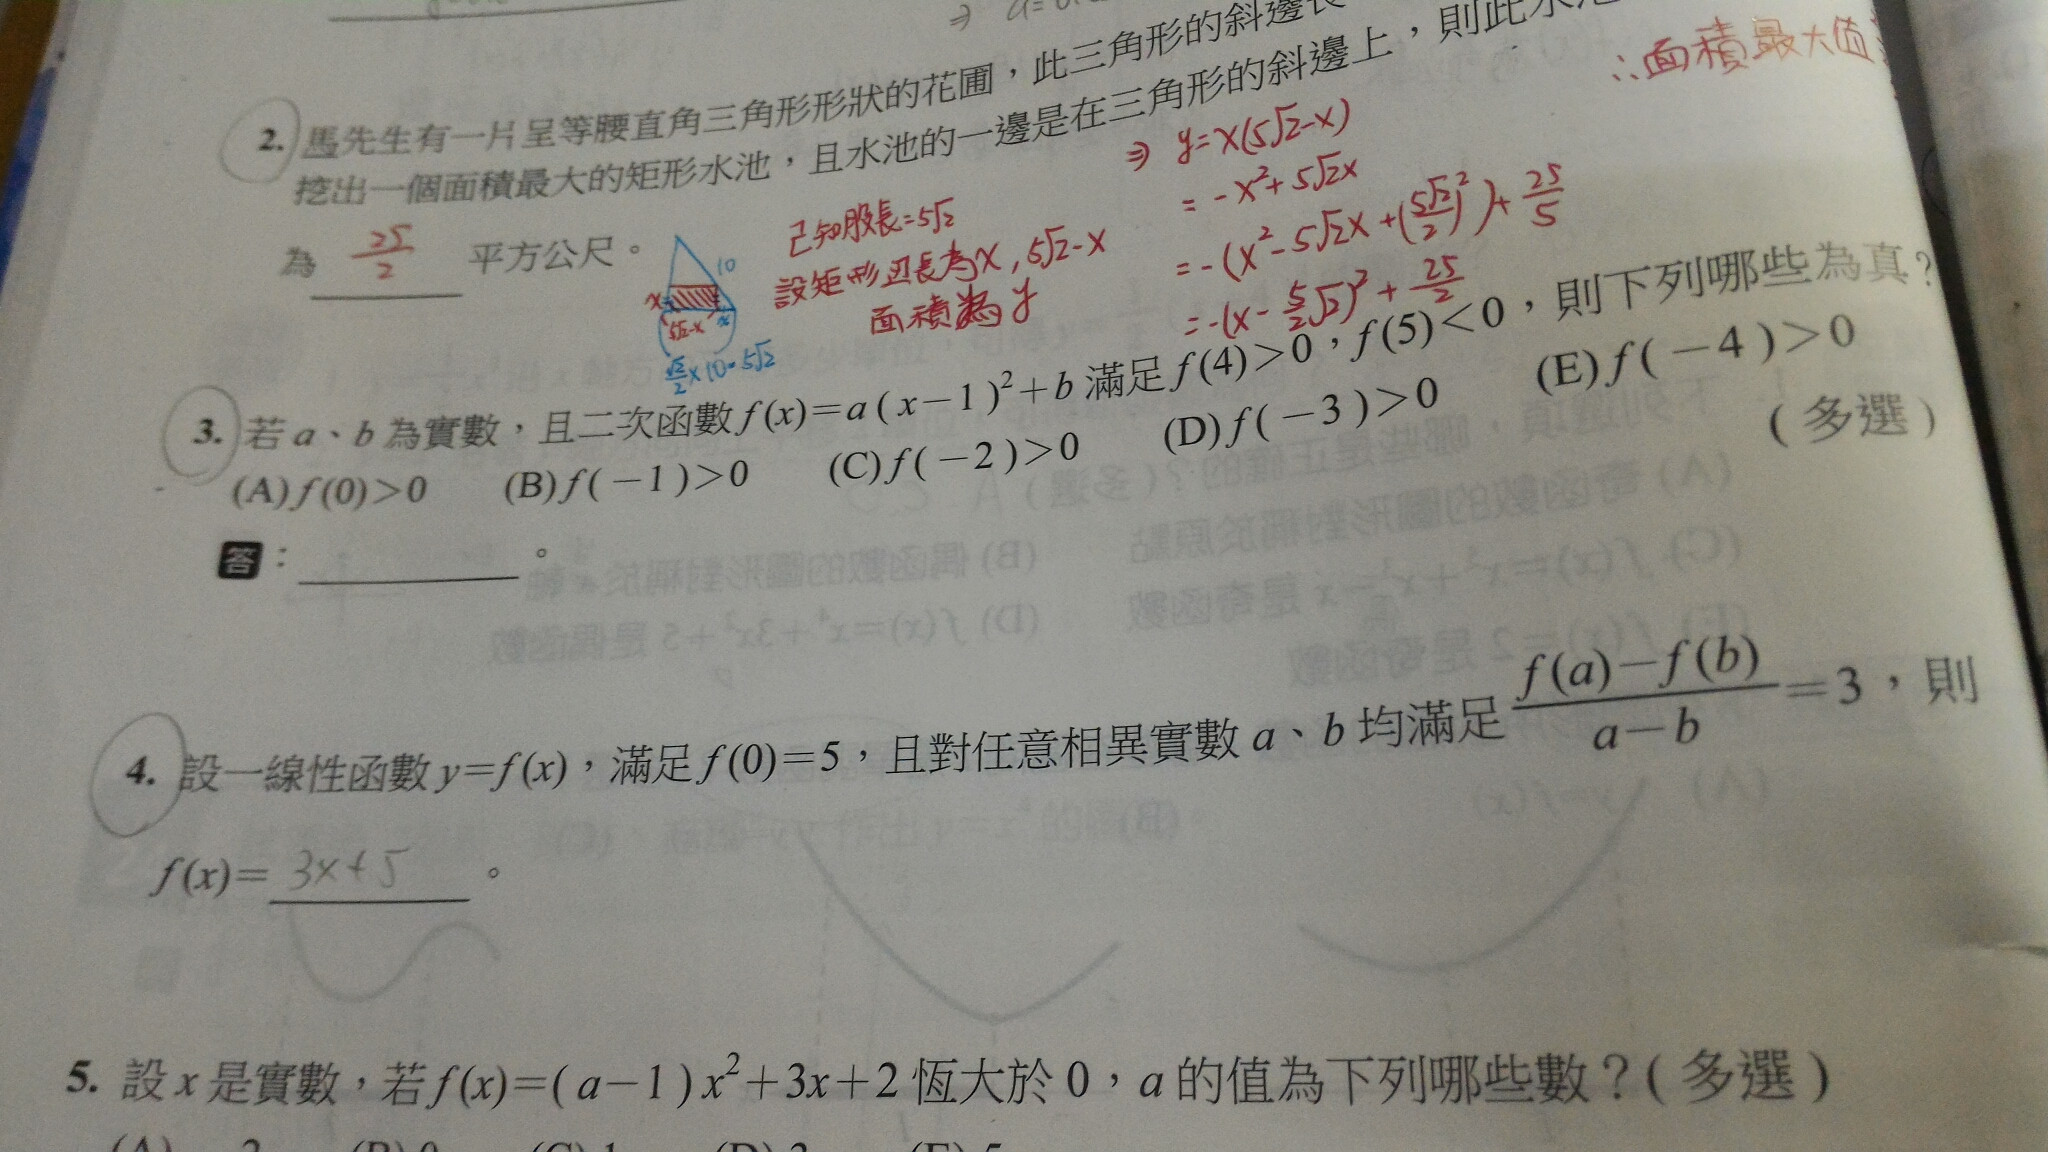 2. 馬先生有一片呈等腰直角三角形形狀的花圃，此三角形的斜邊長
挖出一個面積最大的矩形水池，且水池的一邊是在三角形的斜邊上，則此水池
為 25/2 平方公尺。
10
x
5√2-x
x
√2/2×10=5√2
已知股長=5√2
設矩形边長為x，5√2-x
面積為y
⇒ y=x(5√2-x)
=-x²+5√2x
=-(x²-5√2x+(5√2/2)²)+25/5
=-(x-5/2√2)²+25/2
∴面積最大值
3. 若a、b為實數，且二次函數f(x)=a(x-1)²+b滿足f(4)>0，f(5)<0，則下列哪些為真？
(A)f(0)>0 (B)f(-1)>0 (C)f(-2)>0 (D)f(-3)>0 (E)f(-4)>0
(多選)
答：。
4. 設一線性函數y=f(x)，滿足f(0)=5，且對任意相異實數a、b均滿足 f(a)-f(b)/a-b =3，則
f(x)= 3x+5 。
5. 設x是實數，若f(x)=(a-1)x²+3x+2恆大於0，a的值為下列哪些數？(多選)